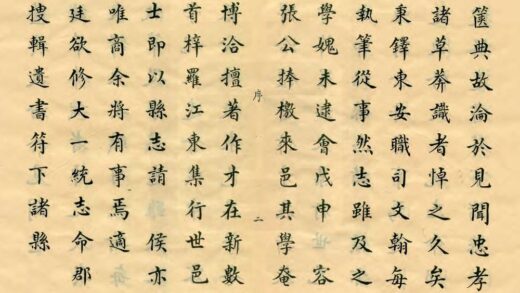 篋典故淪於見聞忠孝
諸草莽識者悼之久矣
秉鐸東安職司文翰每
執筆從事然志雖及之
學媿未逮會戊申 容
張公捧檄來邑其學奄
序 二
博洽擅著作才在新數
首梓羅江東集行世邑
士即以縣志請 侯亦
唯商余將有事焉適
廷欲修大一統志命郡
搜輯遺書符下諸縣